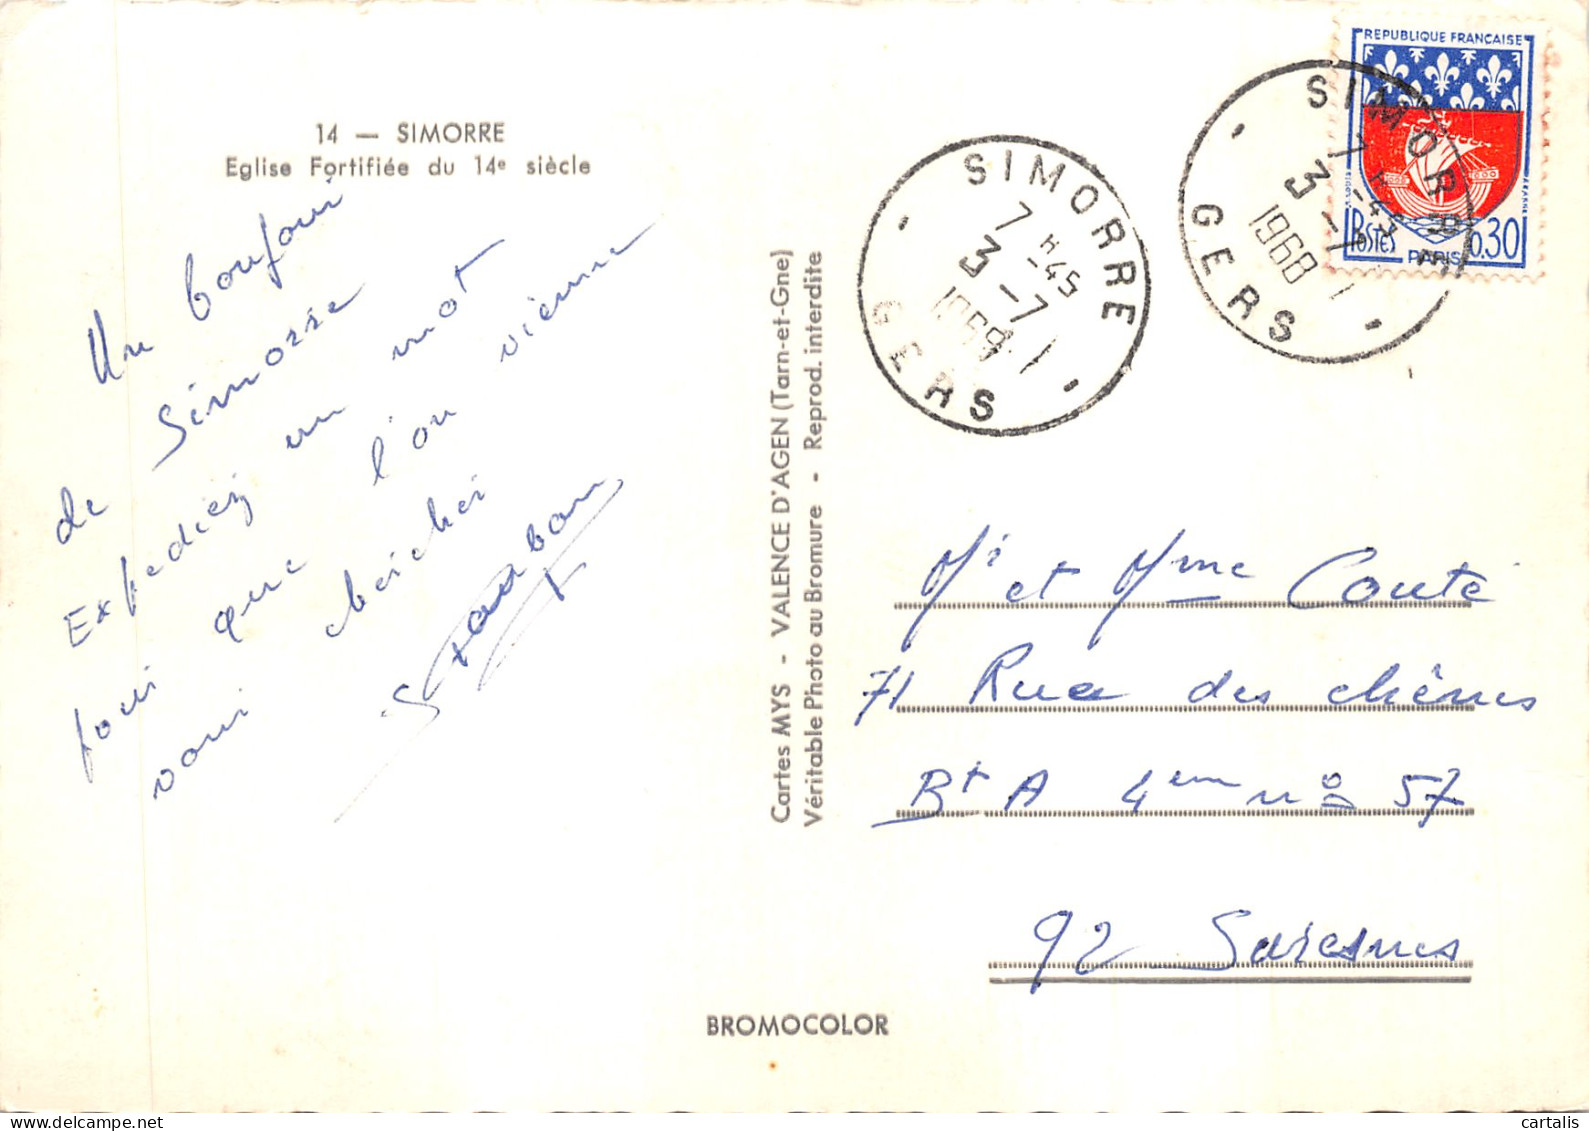 14 — SIMORRE
Eglise Fortifiée du 14e siècle
Un boujour
de Simorre
Expediez un mot
pour que l'on vienne
vour chercher
Cartes MYS - VALENCE D'AGEN (Tarn-et-Gne)
Véritable Photo au Bromure - Reprod. interdite
SIMORRE
7 H -45
3 -7
1968
GERS
SIMORRE
7 H -45
3 -7
1968
GERS
REPUBLIQUE FRANÇAISE
POSTES 0.30
PARIS
Mr et Mme Couté
71 Rue des chênes
Bt A 4em no 57
92 Suresnes
BROMOCOLOR
cartalis
delcampe.net